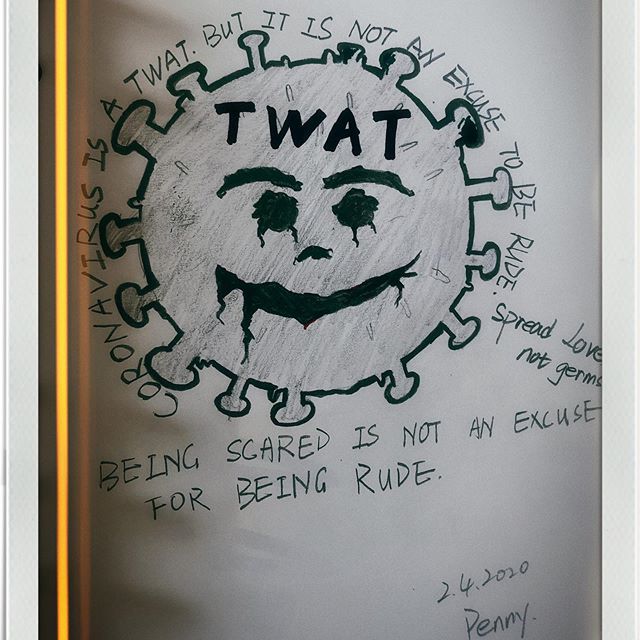 CORONAVIRUS IS A TWAT. BUT IT IS NOT AN EXCUSE TO BE RUDE.
TWAT
Spread Love
not germs
BEING SCARED IS NOT AN EXCUSE
FOR BEING RUDE.
2.4.2020
Penny.